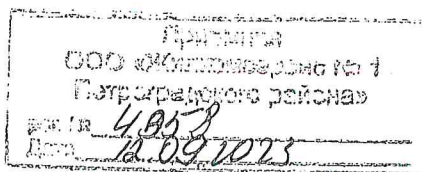 Принято
ООО «Жилкомсервис № 1
Петроградского района»
вх. №
Дата 12.09.2023